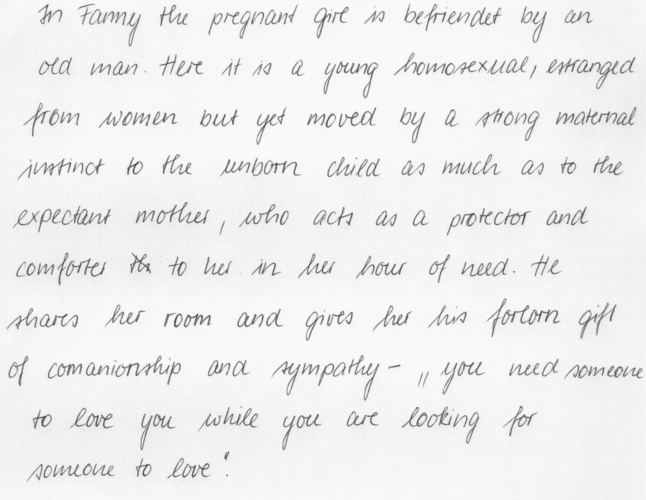 In Fanny the pregnant girl is befriendet by an
old man. Here it is a young homosexual, estranged
from women but yet moved by a strong maternal
instinct to the unborn child as much as to the
expectant mother, who acts as a protector and
comforter to her in her hour of need. He
shares her room and gives her his forlorn gift
of comanionship and sympathy - „you need someone
to love you while you are looking for
someone to love“.